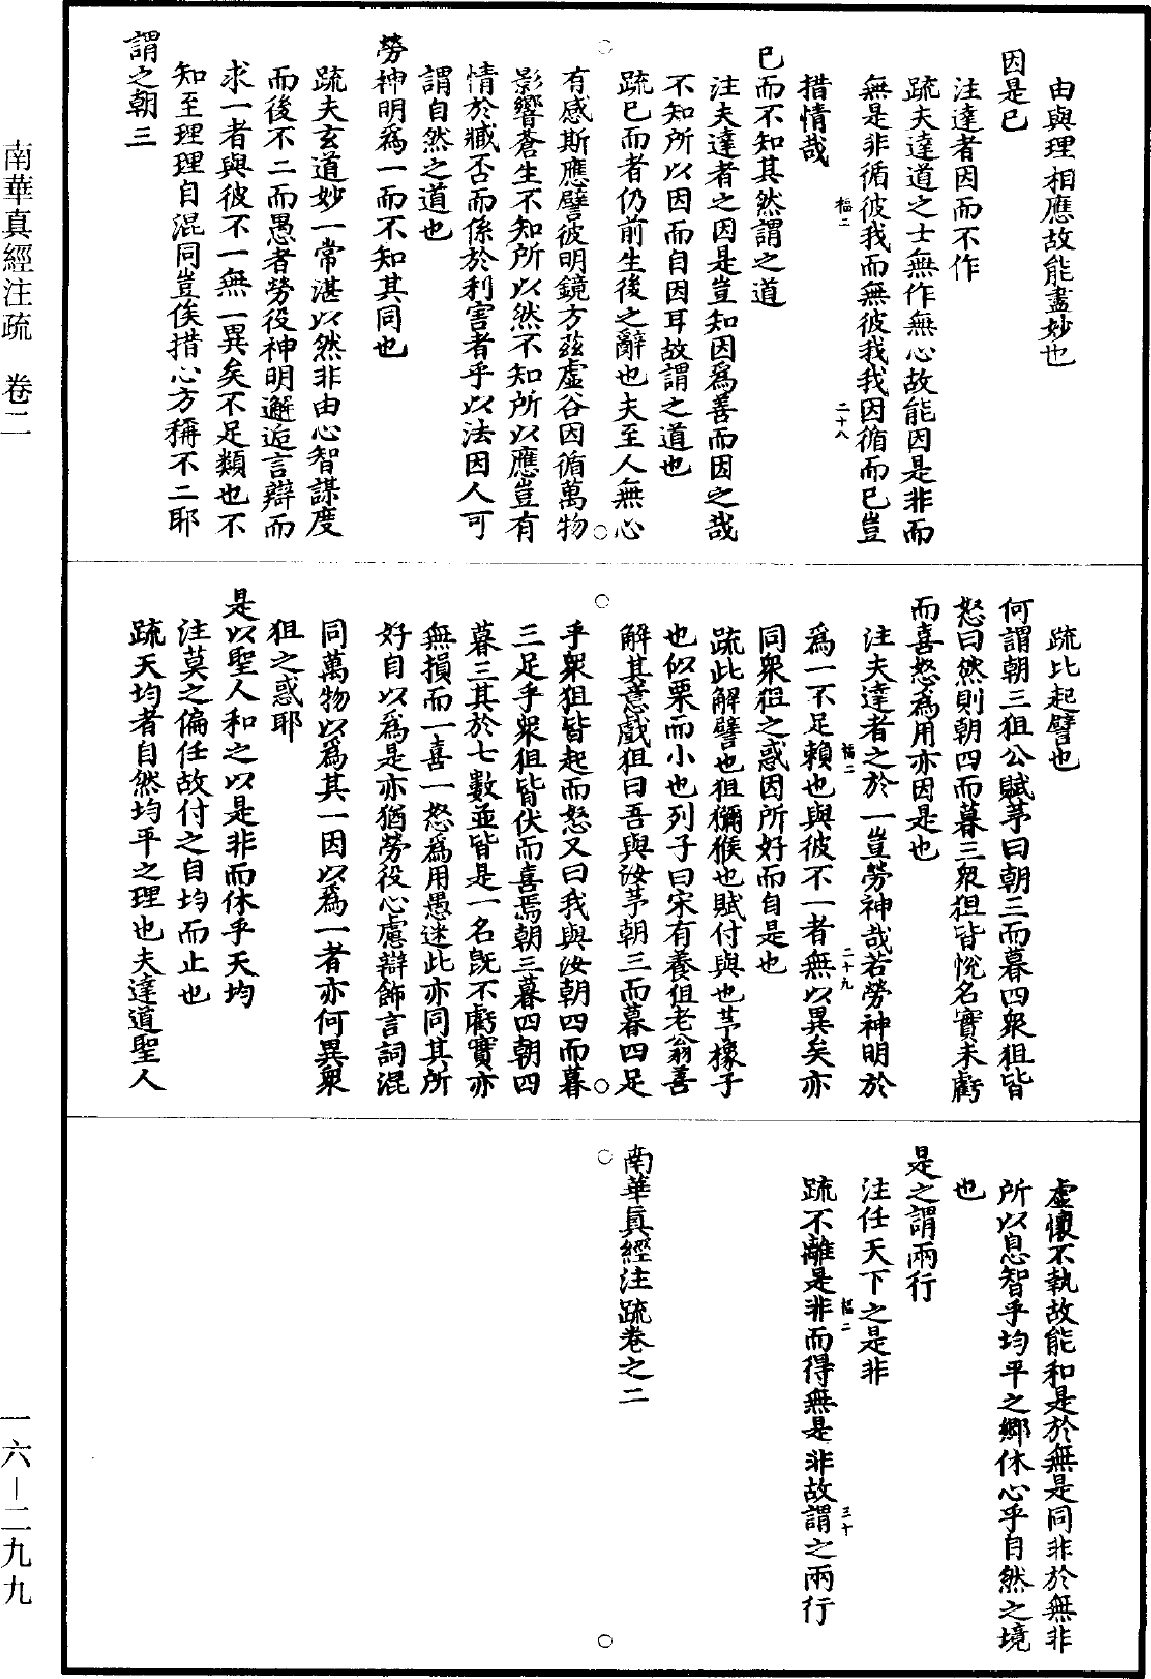 由與理相應故能盡妙也
因是已
注達者因而不作
疏夫達道之士無作無心故能因是非而
無是非循彼我而無彼我我因循而已豈
措情哉
已而不知其然謂之道
注夫達者之因是豈知因爲善而因之哉
不知所以因而自因耳故謂之道也
疏已而者仍前生後之辭也夫至人無心
有感斯應譬彼明鏡方茲虛谷因循萬物
影響蒼生不知所以然不知所以應豈有
情於臧否而係於利害者乎以法因人可
謂自然之道也
勞神明爲一而不知其同也
疏夫玄道妙一常湛以然非由心智謀度
而後不二而愚者勞役神明邂逅言辯而
求一者與彼不一無一異矣不足類也不
知至理理自混同豈俟措心方稱不二耶
謂之朝三
疏比起譬也
何謂朝三狙公賦芧曰朝三而暮四衆狙皆
怒曰然則朝四而暮三衆狙皆悅名實未虧
而喜怒為用亦因是也
注夫達者之於一豈勞神哉若勞神明於
爲一不足賴也與彼不一者無以異矣亦
同衆狙之惑因所好而自是也
疏此解譬也狙獼猴也賦付與也芧橡子
也似栗而小也列子曰宋有養狙老翁善
解其意戲狙曰吾與汝芧朝三而暮四足
乎衆狙皆起而怒又曰我與汝朝四而暮
三足乎衆狙皆伏而喜焉朝三暮四朝四
暮三其於七數並皆是一名旣不虧實亦
無損而一喜一怒為用愚迷此亦同其所
好自以爲是亦猶勞役心慮辯飾言詞混
同萬物以爲其一因以爲一者亦何異衆
狙之惑耶
是以聖人和之以是非而休乎天均
注莫之偏任故付之自均而止也
疏天均者自然均平之理也夫達道聖人
虛懷不執故能和是於無是同非於無非
所以息智乎均平之鄉休心乎自然之境
也
是之謂兩行
注任天下之是非
疏不離是非而得無是非故謂之兩行
南華眞經注疏卷之二
福二
二十八
福二
二十九
福二
三十
南華真經注疏 卷二
一六—二九九